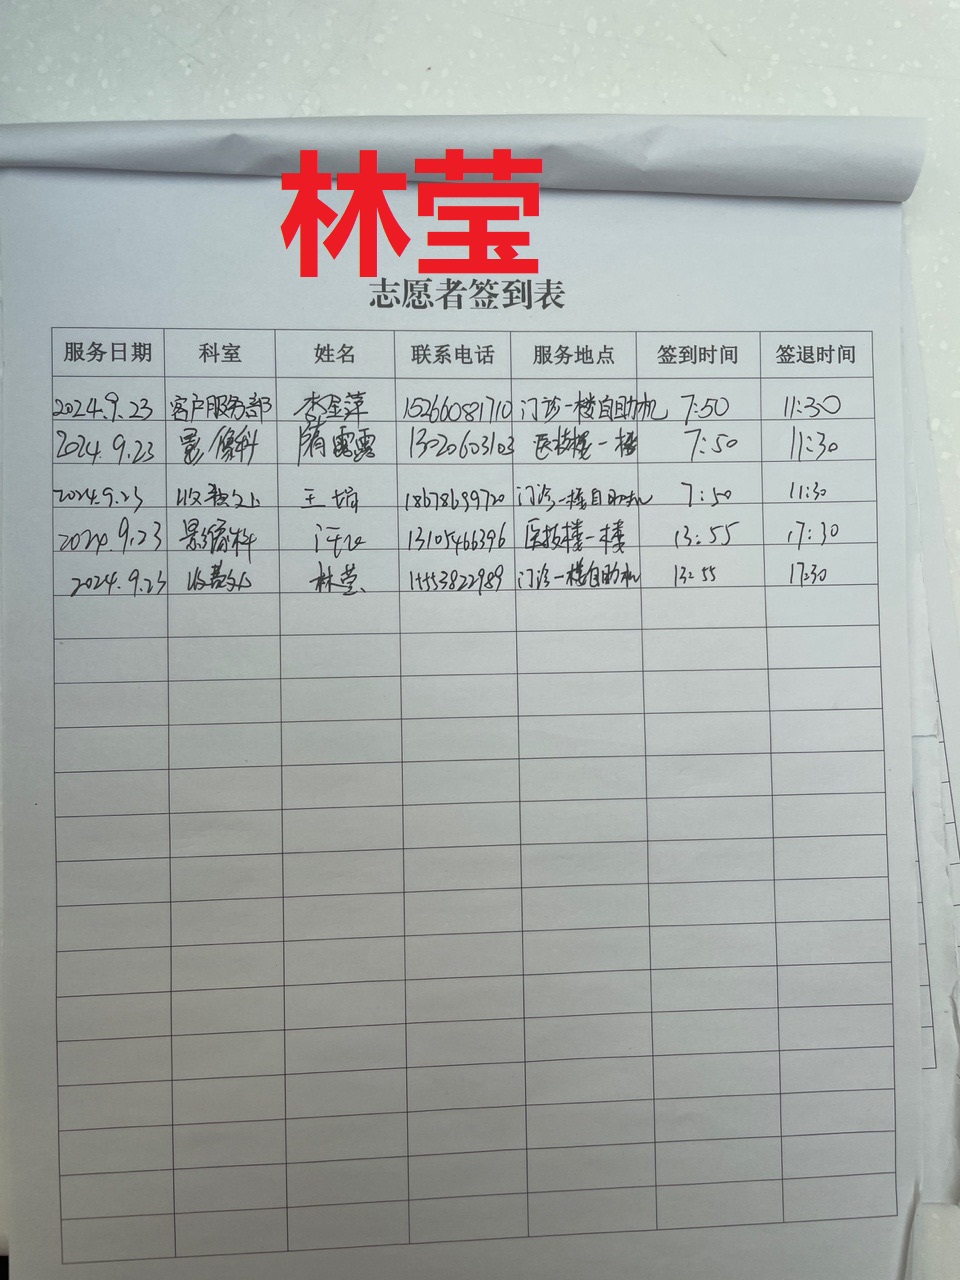 林莹
志愿者签到表
服务日期 科室 姓名 联系电话 服务地点 签到时间 签退时间
2024.9.23 客户服务部 李金萍 15266081710 门诊一楼自助机 7:50 11:30
2024.9.23 影像科 隋露露 13020603103 医技楼一楼 7:50 11:30
2024.9.23 收款处 王培 18678699720 门诊一楼自助机 7:50 11:30
2024.9.23 影像科 13105466396 医技楼一楼 13:55 17:30
2024.9.23 收款处 林莹 15553822989 门诊一楼自助机 13:55 17:30